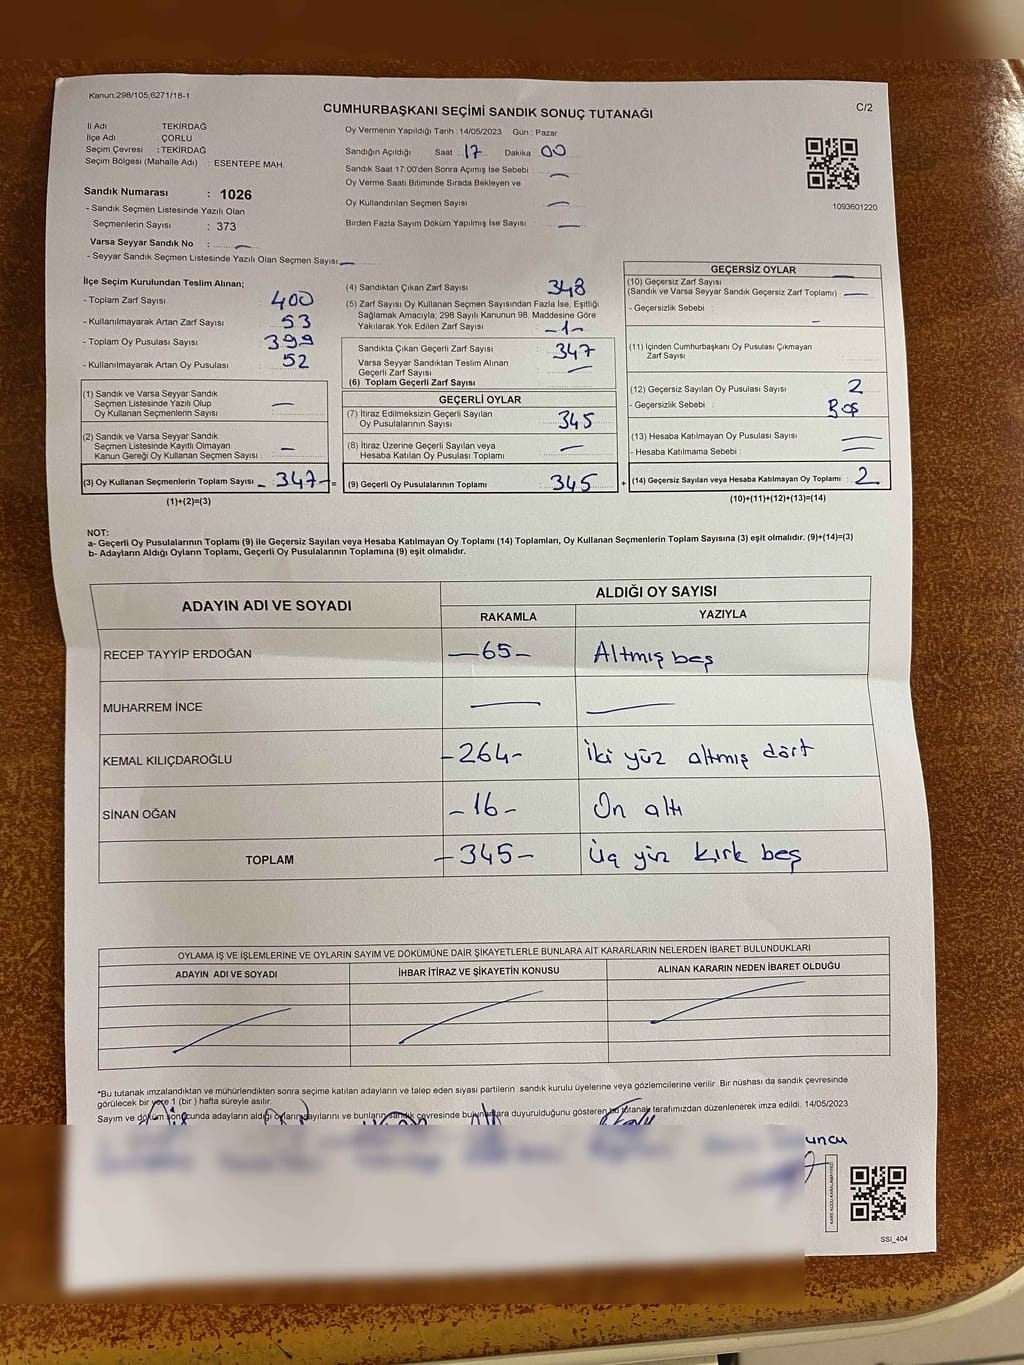 Kanun.298/105,6271/18-1
CUMHURBAŞKANI SEÇİMİ SANDIK SONUÇ TUTANAĞI
C/2
İl Adı : TEKİRDAĞ
İlçe Adı : ÇORLU
Seçim Çevresi : TEKİRDAĞ
Seçim Bölgesi (Mahalle Adı) : ESENTEPE MAH.
Sandık Numarası : 1026
- Sandık Seçmen Listesinde Yazılı Olan
Seçmenlerin Sayısı : 373
Varsa Seyyar Sandık No :
- Seyyar Sandık Seçmen Listesinde Yazılı Olan Seçmen Sayısı
Oy Vermenin Yapıldığı Tarih :14/05/2023 Gün : Pazar
Sandığın Açıldığı Saat 17 Dakika 00
Sandık Saat 17:00'den Sonra Açımış İse Sebebi
Oy Verme Saati Bitiminde Sırada Bekleyen ve
Oy Kullandırılan Seçmen Sayısı
Birden Fazla Sayım Döküm Yapılmış İse Sayısı
1093601220
İlçe Seçim Kurulundan Teslim Alınan;
- Toplam Zarf Sayısı 400
- Kullanılmayarak Artan Zarf Sayısı : 53
- Toplam Oy Pusulası Sayısı : 399
- Kullanılmayarak Artan Oy Pusulası : 52
(1) Sandık ve Varsa Seyyar Sandık
Seçmen Listesinde Yazılı Olup
Oy Kullanan Seçmenlerin Sayısı —
(2) Sandık ve Varsa Seyyar Sandık
Seçmen Listesinde Kayıtlı Olmayan
Kanun Gereği Oy Kullanan Seçmen Sayısı —
(3) Oy Kullanan Seçmenlerin Toplam Sayısı - 347 - =
(1)+(2)=(3)
(4) Sandıktan Çıkan Zarf Sayısı 348
(5) Zarf Sayısı Oy Kullanan Seçmen Sayısından Fazla İse, Eşitliği
Sağlamak Amacıyla; 298 Sayılı Kanunun 98. Maddesine Göre
Yakılarak Yok Edilen Zarf Sayısı -1-
Sandıkta Çıkan Geçerli Zarf Sayısı 347
Varsa Seyyar Sandıktan Teslim Alınan
Geçerli Zarf Sayısı —
(6) Toplam Geçerli Zarf Sayısı
GEÇERLİ OYLAR
(7) İtiraz Edilmeksizin Geçerli Sayılan
Oy Pusulalarının Sayısı 345
(8) İtiraz Üzerine Geçerli Sayılan veya
Hesaba Katılan Oy Pusulası Toplamı —
(9) Geçerli Oy Pusulalarının Toplamı 345 +
GEÇERSİZ OYLAR
(10) Geçersiz Zarf Sayısı
(Sandık ve Varsa Seyyar Sandık Geçersiz Zarf Toplamı) : —
- Geçersizlik Sebebi :
(11) İçinden Cumhurbaşkanı Oy Pusulası Çıkmayan
Zarf Sayısı
(12) Geçersiz Sayılan Oy Pusulası Sayısı 2
- Geçersizlik Sebebi : Boş
(13) Hesaba Katılmayan Oy Pusulası Sayısı —
- Hesaba Katılmama Sebebi : —
(14) Geçersiz Sayılan veya Hesaba Katılmayan Oy Toplamı : 2
(10)+(11)+(12)+(13)=(14)
NOT:
a- Geçerli Oy Pusulalarının Toplamı (9) ile Geçersiz Sayılan veya Hesaba Katılmayan Oy Toplamı (14) Toplamları, Oy Kullanan Seçmenlerin Toplam Sayısına (3) eşit olmalıdır. (9)+(14)=(3)
b- Adayların Aldığı Oyların Toplamı, Geçerli Oy Pusulalarının Toplamına (9) eşit olmalıdır.
ADAYIN ADI VE SOYADI
ALDIĞI OY SAYISI
RAKAMLA YAZIYLA
RECEP TAYYİP ERDOĞAN -65- Altmış beş
MUHARREM İNCE — —
KEMAL KILIÇDAROĞLU -264- İki yüz altmış dört
SİNAN OĞAN -16- On altı
TOPLAM -345- Üç yüz kırk beş
OYLAMA İŞ VE İŞLEMLERİNE VE OYLARIN SAYIM VE DÖKÜMÜNE DAİR ŞİKAYETLERLE BUNLARA AİT KARARLARIN NELERDEN İBARET BULUNDUKLARI
ADAYIN ADI VE SOYADI İHBAR İTİRAZ VE ŞİKAYETİN KONUSU ALINAN KARARIN NEDEN İBARET OLDUĞU
*Bu tutanak imzalandıktan ve mühürlendikten sonra seçime katılan adayların ve talep eden siyasi partilerin sandık kurulu üyelerine veya gözlemcilerine verilir. Bir nüshası da sandık çevresinde
görülecek bir yere 1 (bir) hafta süreyle asılır.
Sayım ve döküm sonucunda adayların aldığı oyların sayılarını ve bunların sandık çevresinde bulunanlara duyurulduğunu gösteren bu tutanak tarafımızdan düzenlenerek imza edildi. 14/05/2023
uncu
KARE KODU KARALAMAYINIZ
SSI_404